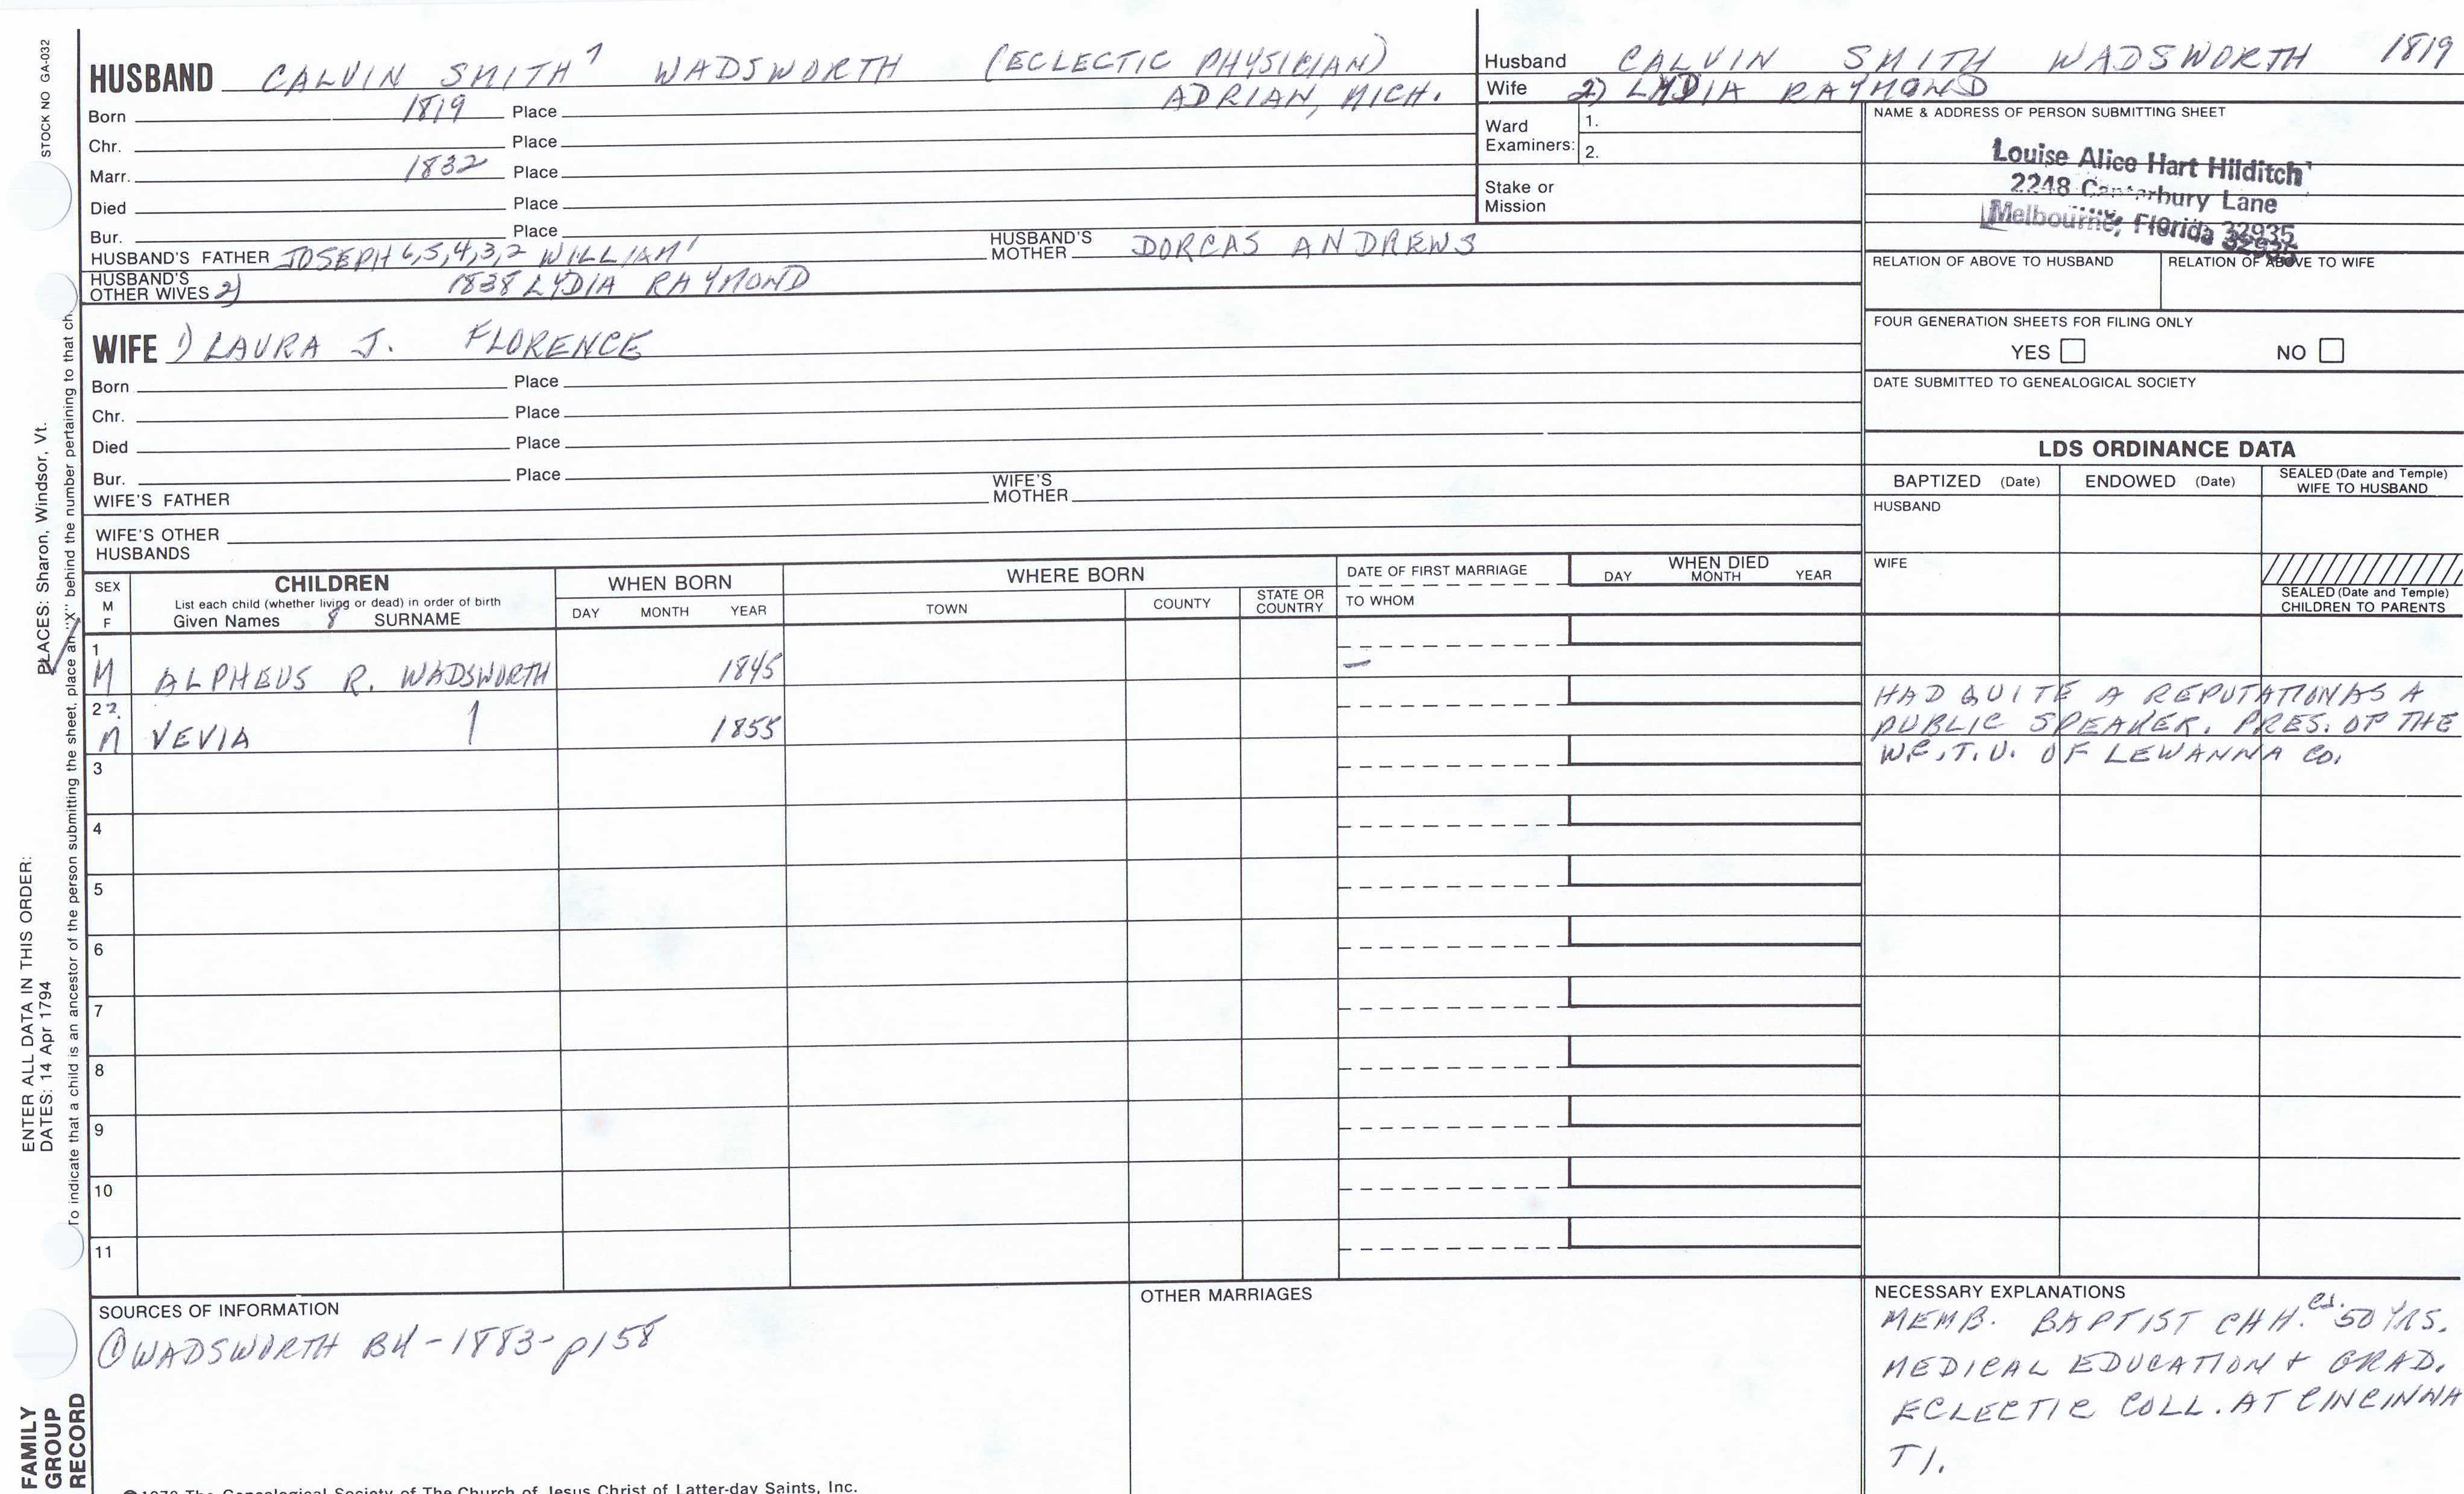 STOCK NO GA-032
HUSBAND CALVIN SMITH 7 WADSWORTH (ECLECTIC PHYSICIAN)
ADRIAN, MICH.
Born 1819 Place
Chr. Place
Marr. 1832 Place
Died Place
Bur. Place
HUSBAND'S FATHER JOSEPH 6,5,4,3,2 WILLIAM 1 HUSBAND'S MOTHER DORCAS ANDREWS
HUSBAND'S OTHER WIVES 2) 1838 LYDIA RAYMOND
WIFE 1) LAURA J. FLORENCE
Born Place
Chr. Place
Died Place
Bur. Place
WIFE'S FATHER WIFE'S MOTHER
WIFE'S OTHER HUSBANDS
Husband CALVIN SMITH WADSWORTH 1819
Wife 2) LYDIA RAYMOND
Ward Examiners: 1.
2.
Stake or Mission
NAME & ADDRESS OF PERSON SUBMITTING SHEET
Louise Alice Hart Hilditch
2248 Canterbury Lane
Melbourne, Florida 32935
32935
RELATION OF ABOVE TO HUSBAND RELATION OF ABOVE TO WIFE
FOUR GENERATION SHEETS FOR FILING ONLY
YES NO
DATE SUBMITTED TO GENEALOGICAL SOCIETY
LDS ORDINANCE DATA
BAPTIZED (Date) ENDOWED (Date) SEALED (Date and Temple) WIFE TO HUSBAND
HUSBAND
WIFE
SEALED (Date and Temple) CHILDREN TO PARENTS
SEX M F CHILDREN WHEN BORN WHERE BORN DATE OF FIRST MARRIAGE WHEN DIED
List each child (whether living or dead) in order of birth
Given Names 8 SURNAME DAY MONTH YEAR TOWN COUNTY STATE OR COUNTRY TO WHOM DAY MONTH YEAR
1 M ALPHEUS R. WADSWORTH 1845 —
2 2. M VEVIA 1855
HAD QUITE A REPUTATION AS A
PUBLIC SPEAKER. PRES. OF THE
W.C.T.U. OF LEWANNA CO.
3
4
5
6
7
8
9
10
11
SOURCES OF INFORMATION
① WADSWORTH BK-1883-p158
OTHER MARRIAGES
NECESSARY EXPLANATIONS
MEMB. BAPTIST CHH. ca. 50 YRS.
MEDICAL EDUCATION + GRAD.
ECLECTIC COLL. AT CINCINNA
TI.
PLACES: Sharon, Windsor, Vt.
To indicate that a child is an ancestor of the person submitting the sheet, place an "X" behind the number pertaining to that ch
ENTER ALL DATA IN THIS ORDER:
DATES: 14 Apr 1794
FAMILY
GROUP
RECORD
The Genealogical Society of The Church of Jesus Christ of Latter-day Saints, Inc.